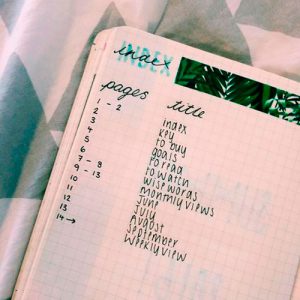 INDEX
index
pages title
1 - 2
3
4
5
6
7 - 8
9 - 13
10
11
12
13
14 →
index
key
to buy
goals
to read
to watch
wise words
monthly views
june
july
august
september
weekly view